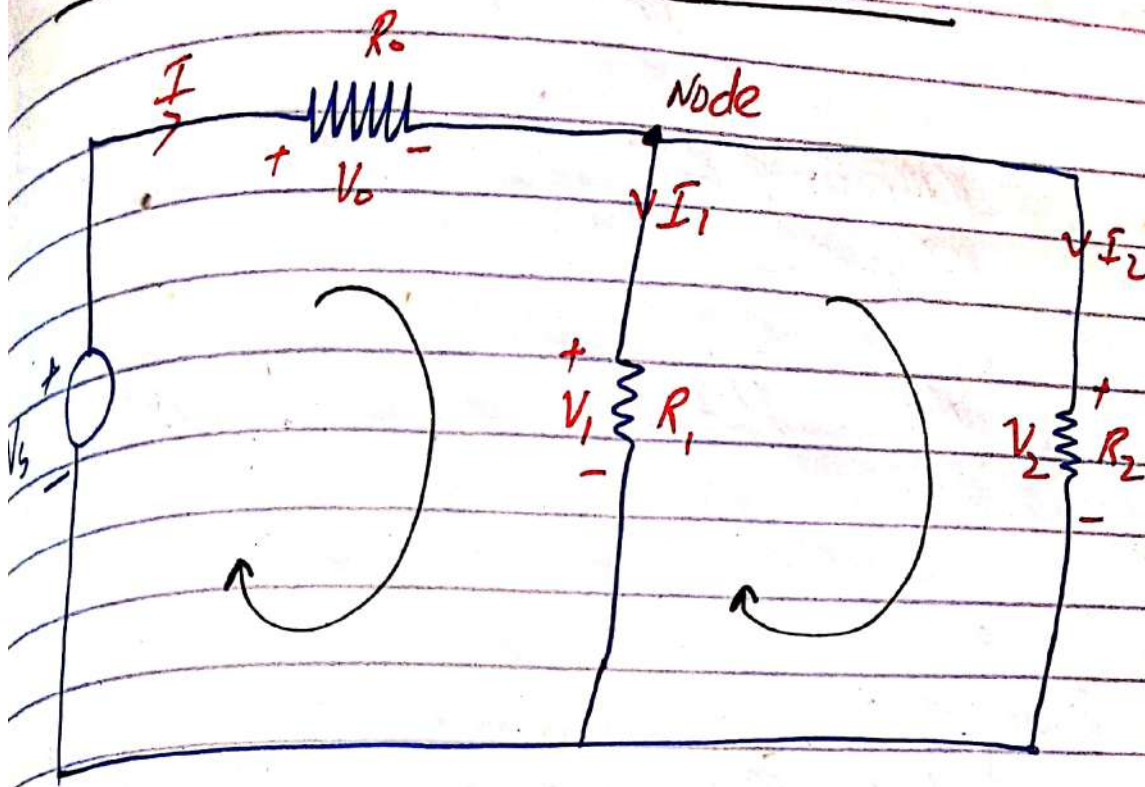 R₀
I
Node
+ V₀ -
I₁
I₂
+
Vs
-
+
V₁ R₁
-
+
V₂ R₂
-